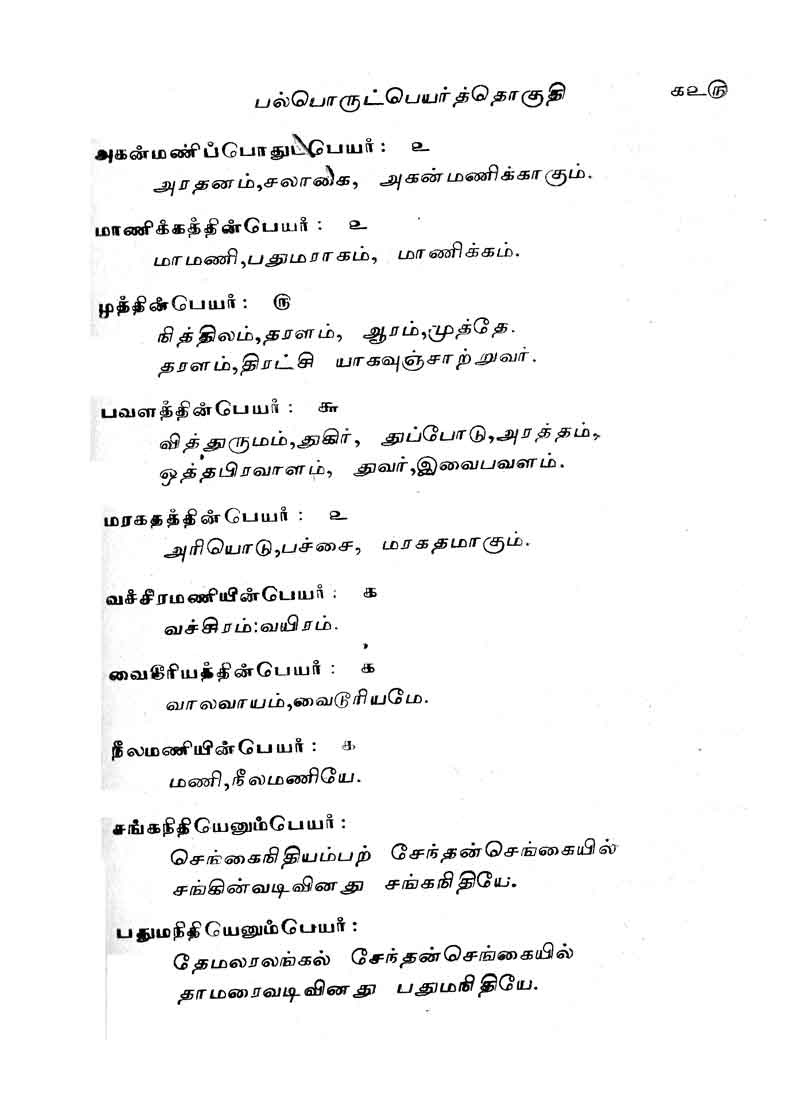 பல்பொருட்பெயர்த்தொகுதி க௨௫
அகன்மணிப்போதுப்பெயர்: ௨
அரதனம்,சலாகை, அகன்மணிக்காகும்.
மாணிக்கத்தின்பெயர்: ௨
மாமணி,பதுமராகம், மாணிக்கம்.
முத்தின்பெயர்: ௫
நித்திலம்,தரளம், ஆரம்,முத்தே.
தரளம்,திரட்சி யாகவுஞ்சாற்றுவர்.
பவளத்தின்பெயர்: ௬
வித்துருமம்,துகிர், துப்போடு,அரத்தம்,
ஒத்தபிரவாளம், துவர்,இவைபவளம்.
மரகதத்தின்பெயர்: ௨
அரியொடு,பச்சை, மரகதமாகும்.
வச்சீரமணியின்பெயர்: க
வச்சிரம்:வயிரம்.
வைடூரியத்தின்பெயர்: க
வாலவாயம்,வைடூரியமே.
நீலமணியின்பெயர்: க
மணி,நீலமணியே.
சங்கநிதியெனும்பெயர்:
செங்கைநிதியம்பற் சேந்தன்செங்கையில்
சங்கின்வடிவினது சங்கநிதியே.
பதுமநிதியெனும்பெயர்:
தேமலரலங்கல் சேந்தன்செங்கையில்
தாமரைவடிவினது பதுமநிதியே.